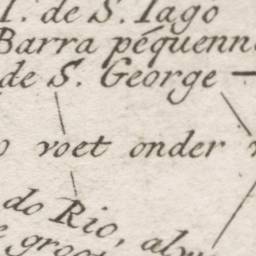 I. de S. Iago
Barra péquenn
de S. George
voet onder
do Rio, alw
groot